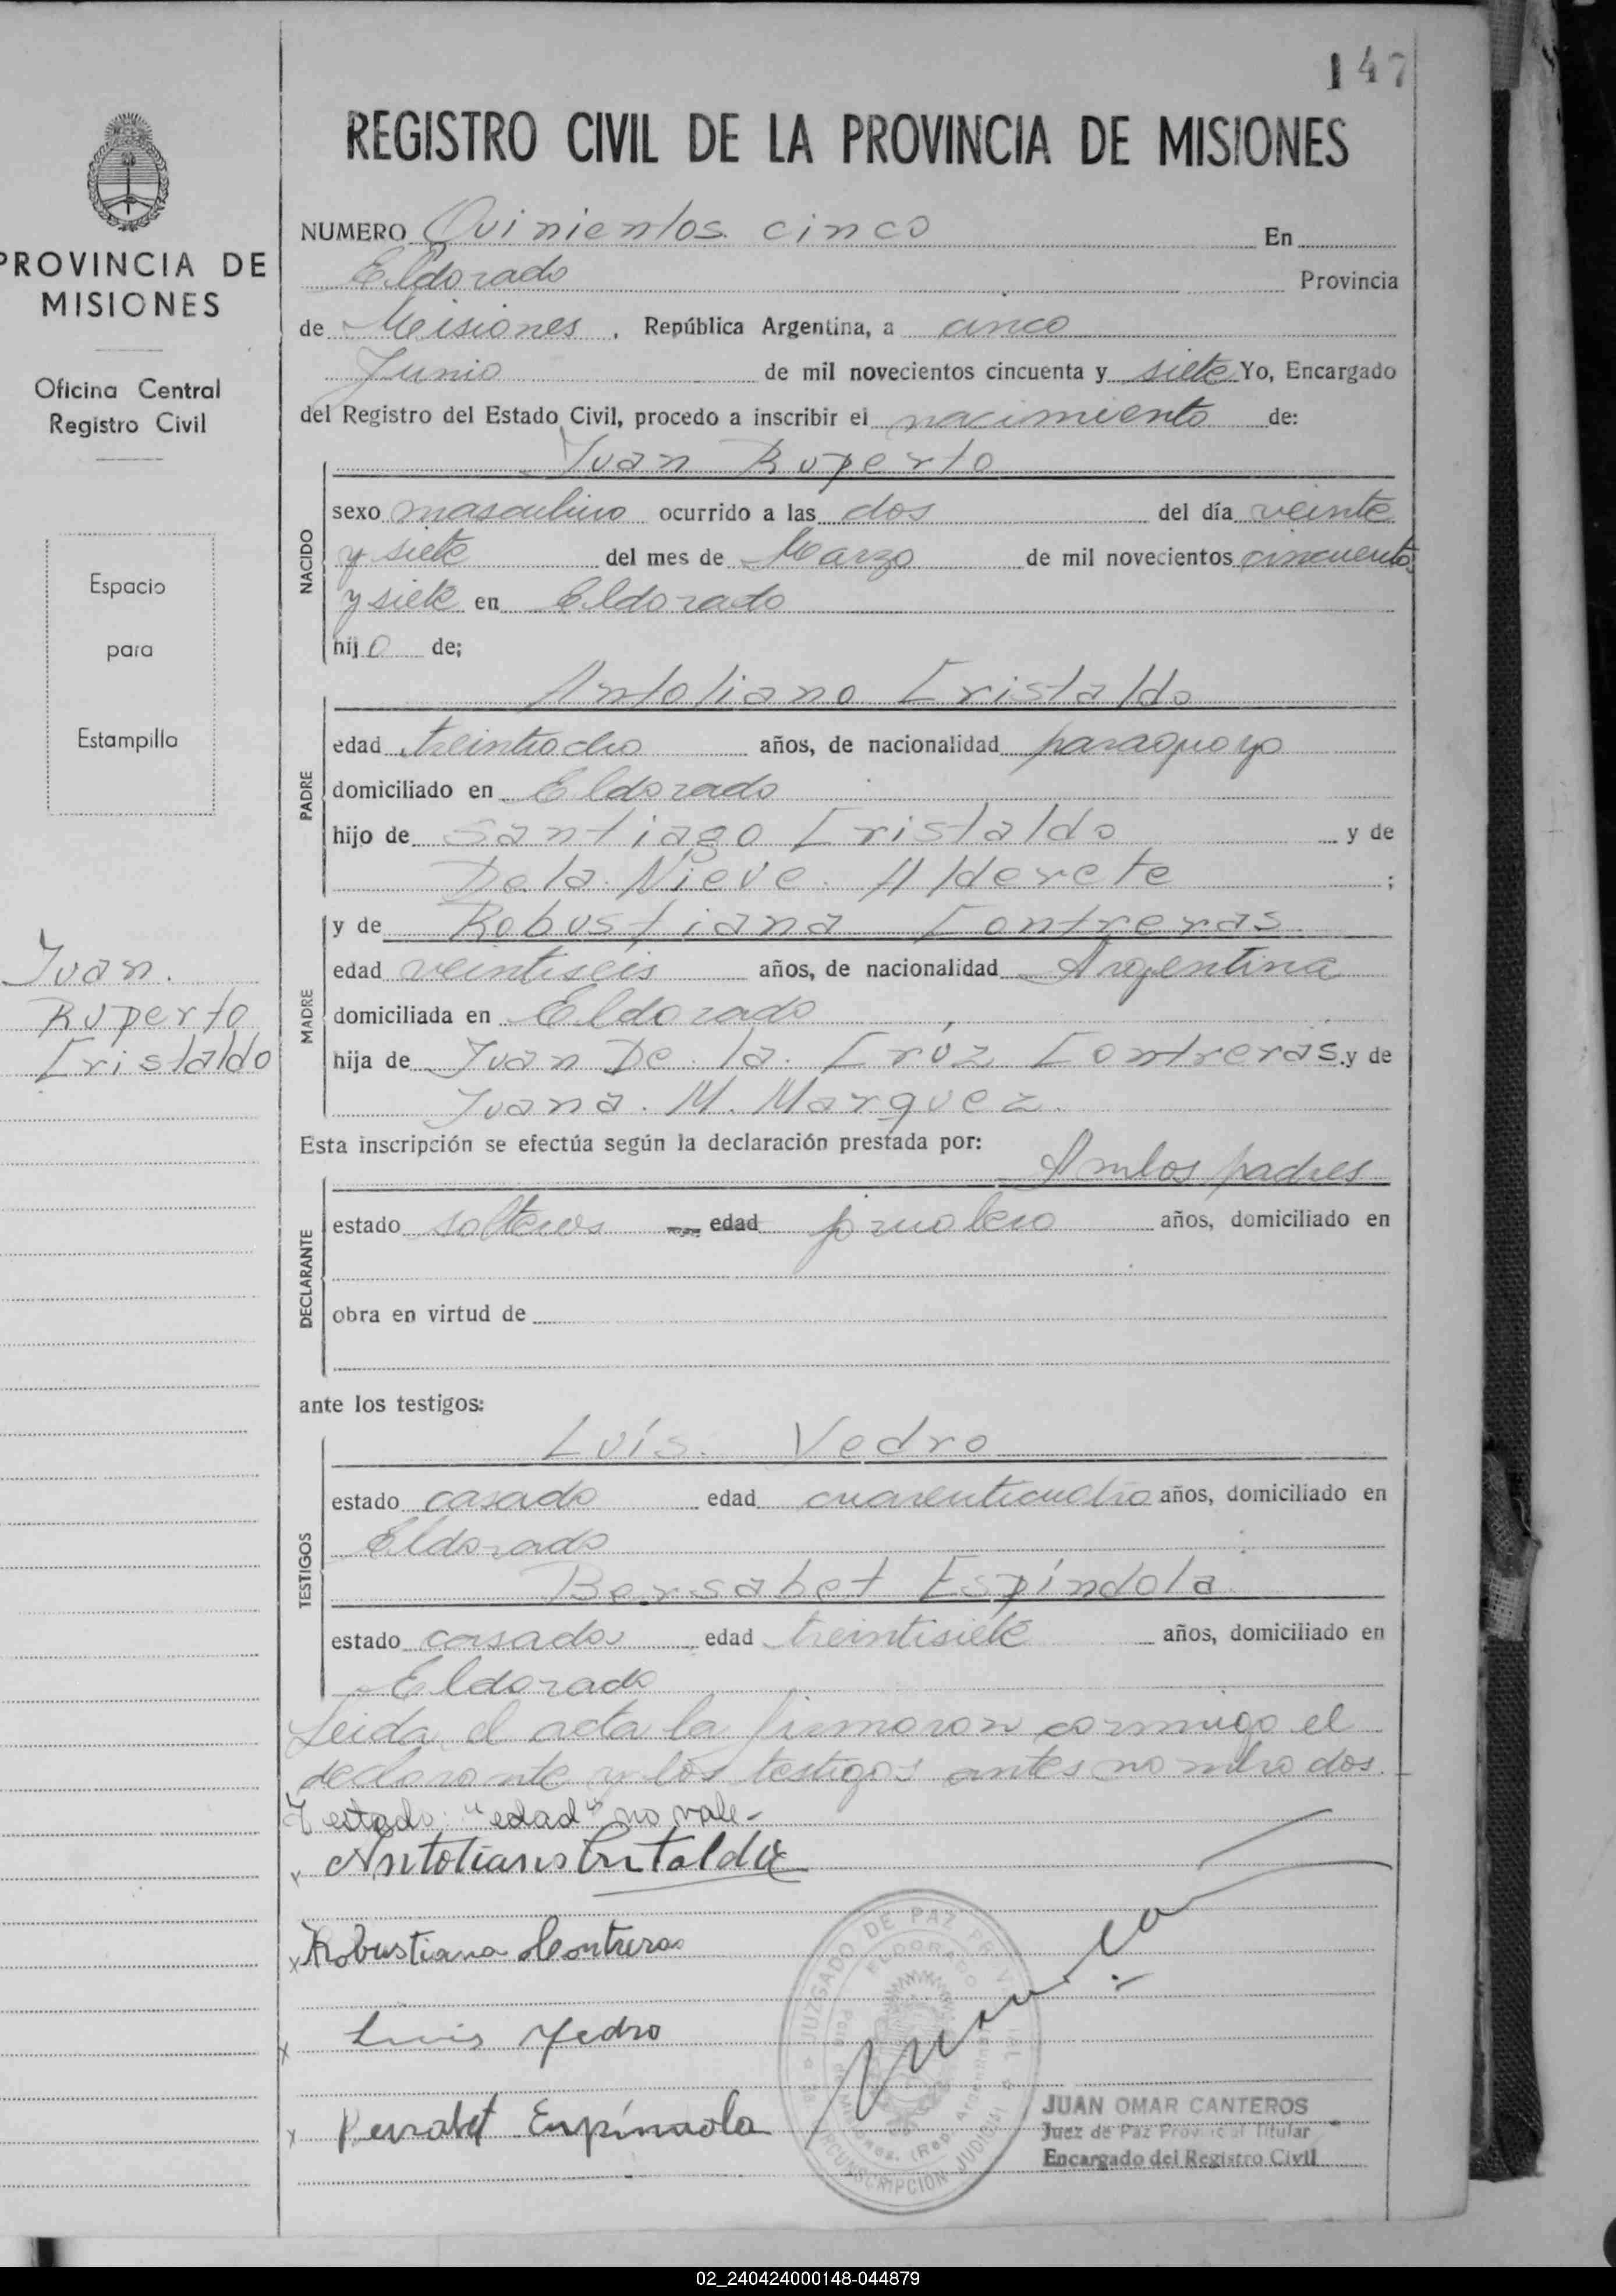 147
REGISTRO CIVIL DE LA PROVINCIA DE MISIONES
PROVINCIA DE
MISIONES
Oficina Central
Registro Civil
Espacio
para
Estampilla
Juan.
Ruperto
Cristaldo
NUMERO Quinientos cinco En
Eldorado Provincia
de Misiones, República Argentina, a cinco
Junio de mil novecientos cincuenta y siete Yo, Encargado
del Registro del Estado Civil, procedo a inscribir el nacimiento de:
Juan Ruperto
NACIDO
sexo masculino ocurrido a las dos del día veinte
y siete del mes de Marzo de mil novecientos cincuenta
y siete en Eldorado
hijo de;
Antoliano Cristaldo
PADRE
edad treintiocho años, de nacionalidad paraguayo
domiciliado en Eldorado
hijo de Santiago Cristaldo y de
De la. Nieve. Alderete ;
y de Robustiana Contreras
MADRE
edad veintiseis años, de nacionalidad Argentina
domiciliada en Eldorado
hija de Juan De. la. Cruz Contreras y de
Juana. M. Marquez.
Esta inscripción se efectúa según la declaración prestada por:
Ambos padres
DECLARANTE
estado solteros edad años, domiciliado en
obra en virtud de
ante los testigos:
Luís. Vedro
TESTIGOS
estado casado edad cuarenticuatro años, domiciliado en
Eldorado
Bersabet Espíndola
estado casado edad treintisiete años, domiciliado en
Eldorado
Leida el acta la firmaron conmigo el
declarante y los testigos antes nombrados.
Testado: "edad" no vale-
x Antoliano Cristaldo
x Robustiana Contreras
x Luis Vedro
x Bersabet Espíndola
JUZGADO DE PAZ
ELDORADO
CIRCUNSCRIPCION JUDICIAL
JUAN OMAR CANTEROS
Juez de Paz Provincial Titular
Encargado del Registro Civil
02_240424000148-044879